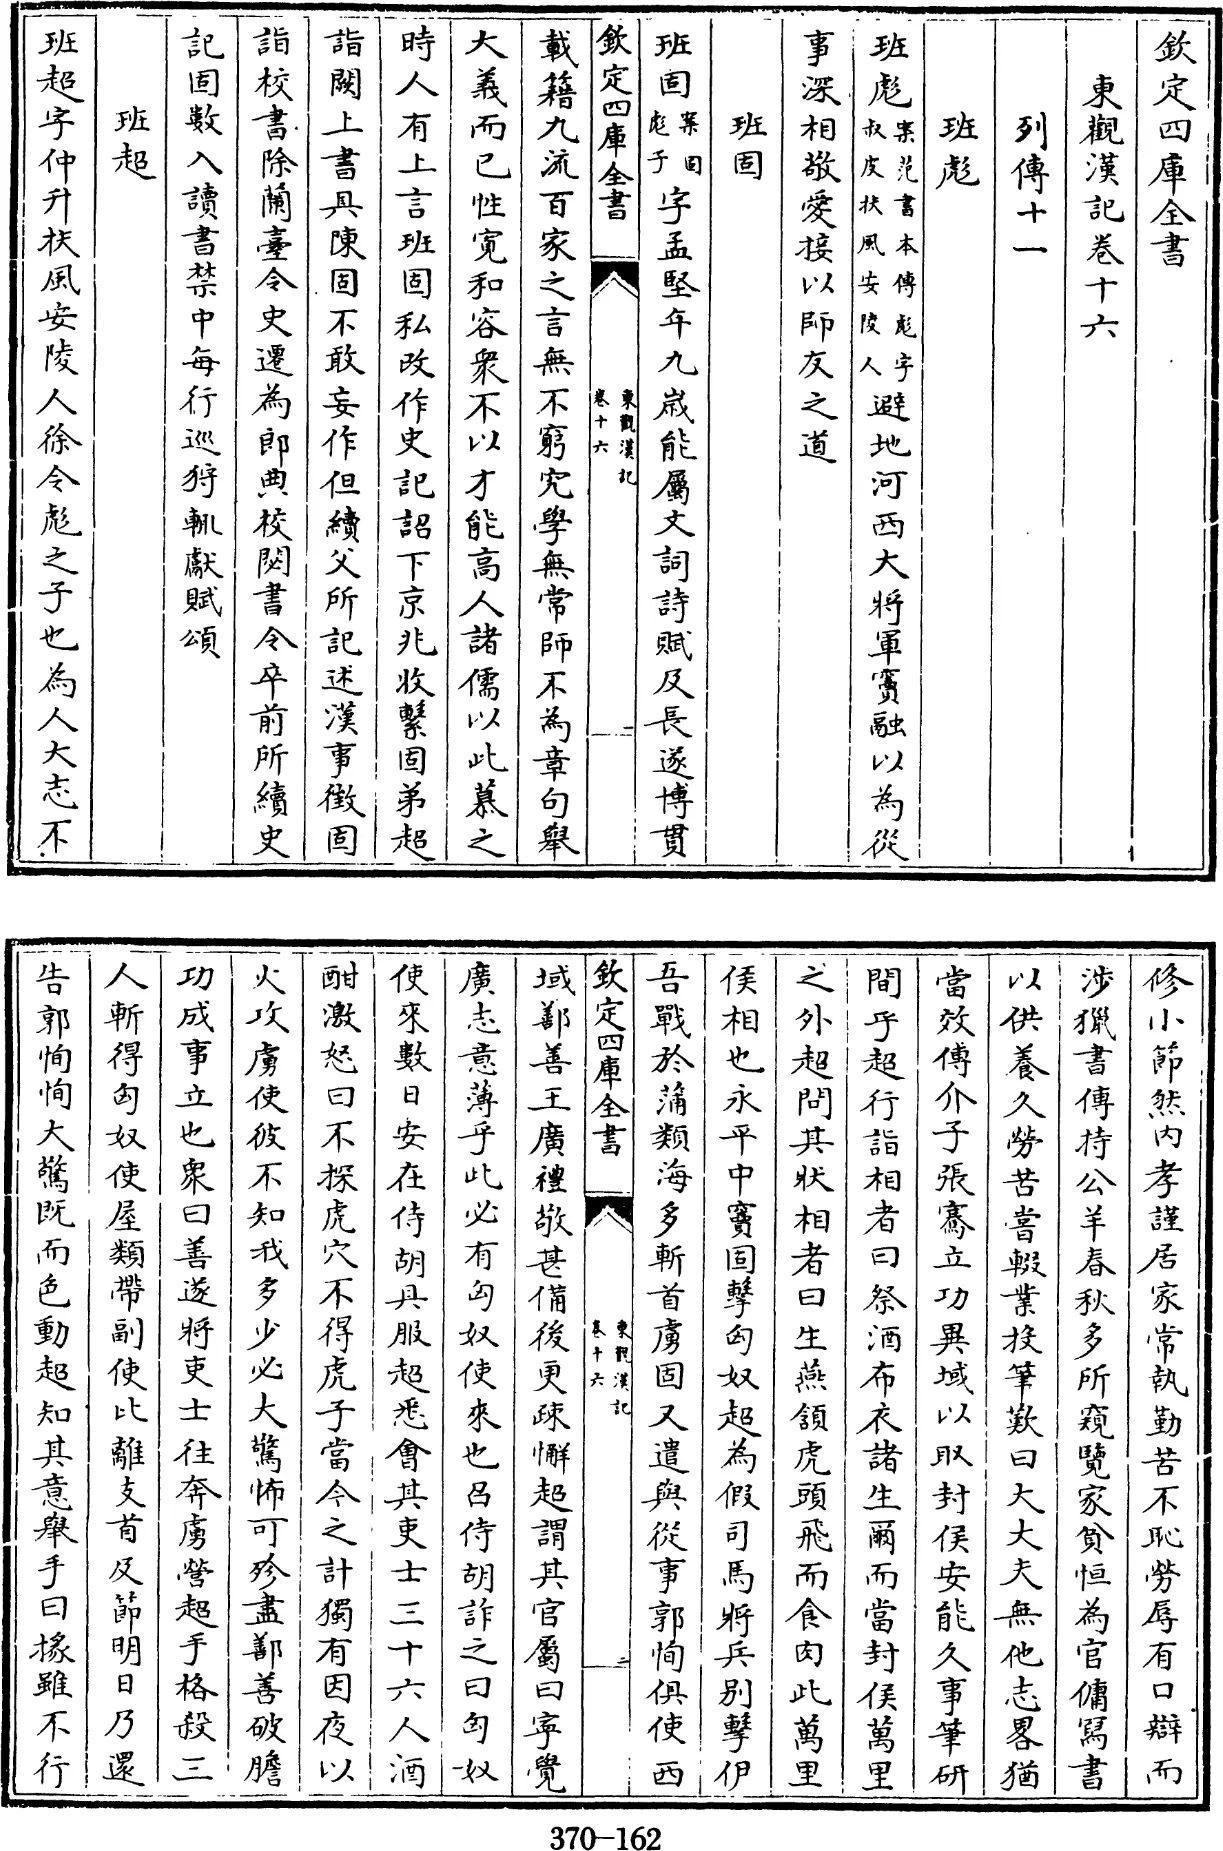 欽定四庫全書
東觀漢記卷十六
列傳十一
班彪
班彪案范書本傳彪字叔皮扶風安陵人避地河西大將軍竇融以為從
事深相敬愛接以師友之道
班固
班固案固彪子字孟堅年九歲能屬文詞詩賦及長遂博貫
欽定四庫全書
東觀漢記
卷十六
一
載籍九流百家之言無不窮究學無常師不為章句舉
大義而已性寬和容衆不以才能高人諸儒以此慕之
時人有上言班固私改作史記詔下京兆收繫固弟超
詣闕上書具陳固不敢妄作但續父所記述漢事徵固
詣校書除蘭臺令史遷為郎典校閱書令卒前所續史
記固數入讀書禁中每行巡狩輒獻賦頌
班超
班超字仲升扶風安陵人徐令彪之子也為人大志不
修小節然內孝謹居家常執勤苦不恥勞辱有口辯而
涉獵書傳持公羊春秋多所窺覽家貧恒為官傭寫書
以供養久勞苦嘗輟業投筆歎曰大丈夫無他志畧猶
當效傅介子張騫立功異域以取封侯安能久事筆研
間乎超行詣相者曰祭酒布衣諸生爾而當封侯萬里
之外超問其狀相者曰生燕頷虎頭飛而食肉此萬里
侯相也永平中竇固擊匈奴超為假司馬將兵别擊伊
吾戰於蒲類海多斬首虜固又遣與從事郭恂俱使西
欽定四庫全書
東觀漢記
卷十六
二
域鄯善王廣禮敬甚備後更疎懈超謂其官屬曰寧覺
廣志意薄乎此必有匈奴使來也召侍胡詐之曰匈奴
使來數日安在侍胡具服超悉會其吏士三十六人酒
酣激怒曰不探虎穴不得虎子當今之計獨有因夜以
火攻虜使彼不知我多少必大驚怖可殄盡鄯善破膽
功成事立也衆曰善遂將吏士往奔虜營超手格殺三
人斬得匈奴使屋類帶副使比離支首及節明日乃還
告郭恂恂大驚既而色動超知其意舉手曰掾雖不行
370-162